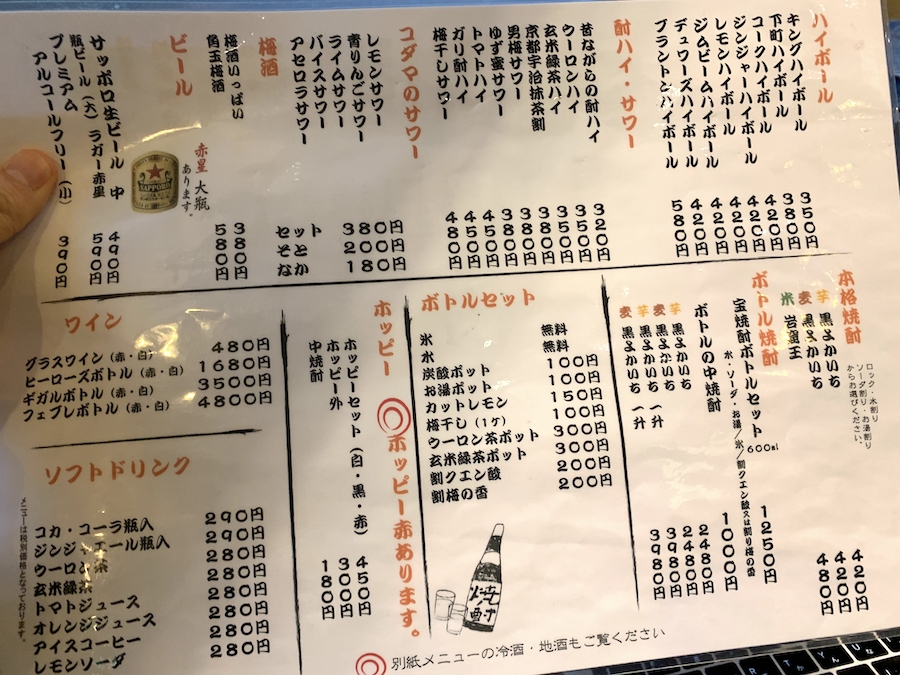 ハイボール
キングハイボール 350円
下町ハイボール 380円
コークハイボール 420円
ジンジャーハイボール 420円
レモンハイボール 420円
ジムビームハイボール 420円
デュワーズハイボール 420円
ブラントンハイボール 580円
酎ハイ・サワー
昔ながらの酎ハイ 320円
ウーロンハイ 350円
玄米緑茶ハイ 350円
京都宇治抹茶割 380円
男梅サワー 380円
ゆず蜜サワー 380円
トマトハイ 450円
ガリ酎ハイ 450円
梅干しサワー 480円
コダマのサワー
レモンサワー
青りんごサワー
ライムサワー
バイスサワー
アセロラサワー
セット 380円
そと 200円
なか 180円
梅酒
梅酒いっぱい 380円
角玉梅酒 580円
ビール
赤星 大瓶
あります。
SAPPORO
サッポロ生ビール 中 490円
瓶ビール(大)ラガー赤星 590円
プレミアム
アルコールフリー(小) 390円
本格焼酎
ロック・水割り
ソーダ割り・お湯割り
からお選びください。
芋 黒よかいち 420円
麦 黒よかいち 420円
米 岩窟王 480円
ボトル焼酎
宝焼酎ボトルセット 600ml 1250円
氷・ソーダ・お湯/氷/割クエン酸又は割り梅の香
ボトルの中焼酎 1000円
芋 黒よかいち 2480円
麦 黒よかいち 2480円
芋 黒よかいち 一升 3980円
麦 黒よかいち 一升 3980円
ボトルセット
氷 無料
水 無料
炭酸ポット 100円
お湯ポット 100円
カットレモン 150円
梅干し(1ケ) 100円
ウーロン茶ポット 300円
玄米緑茶ポット 300円
割クエン酸 200円
割梅の香 200円
焼酎
ホッピー
ホッピー赤あります。
ホッピーセット(白・黒・赤) 450円
ホッピー外 300円
中焼酎 180円
ワイン
グラスワイン(赤・白) 480円
ヒーローズボトル(赤・白) 1680円
ギガルボトル(赤・白) 3500円
フェブレボトル(赤・白) 4800円
ソフトドリンク
コカ・コーラ瓶入 290円
ジンジャエール瓶入 290円
ウーロン茶 280円
玄米緑茶 280円
トマトジュース 280円
オレンジジュース 280円
アイスコーヒー 280円
レモンソーダ 280円
メニューは税別価格となっております。
別紙メニューの冷酒・地酒もご覧ください